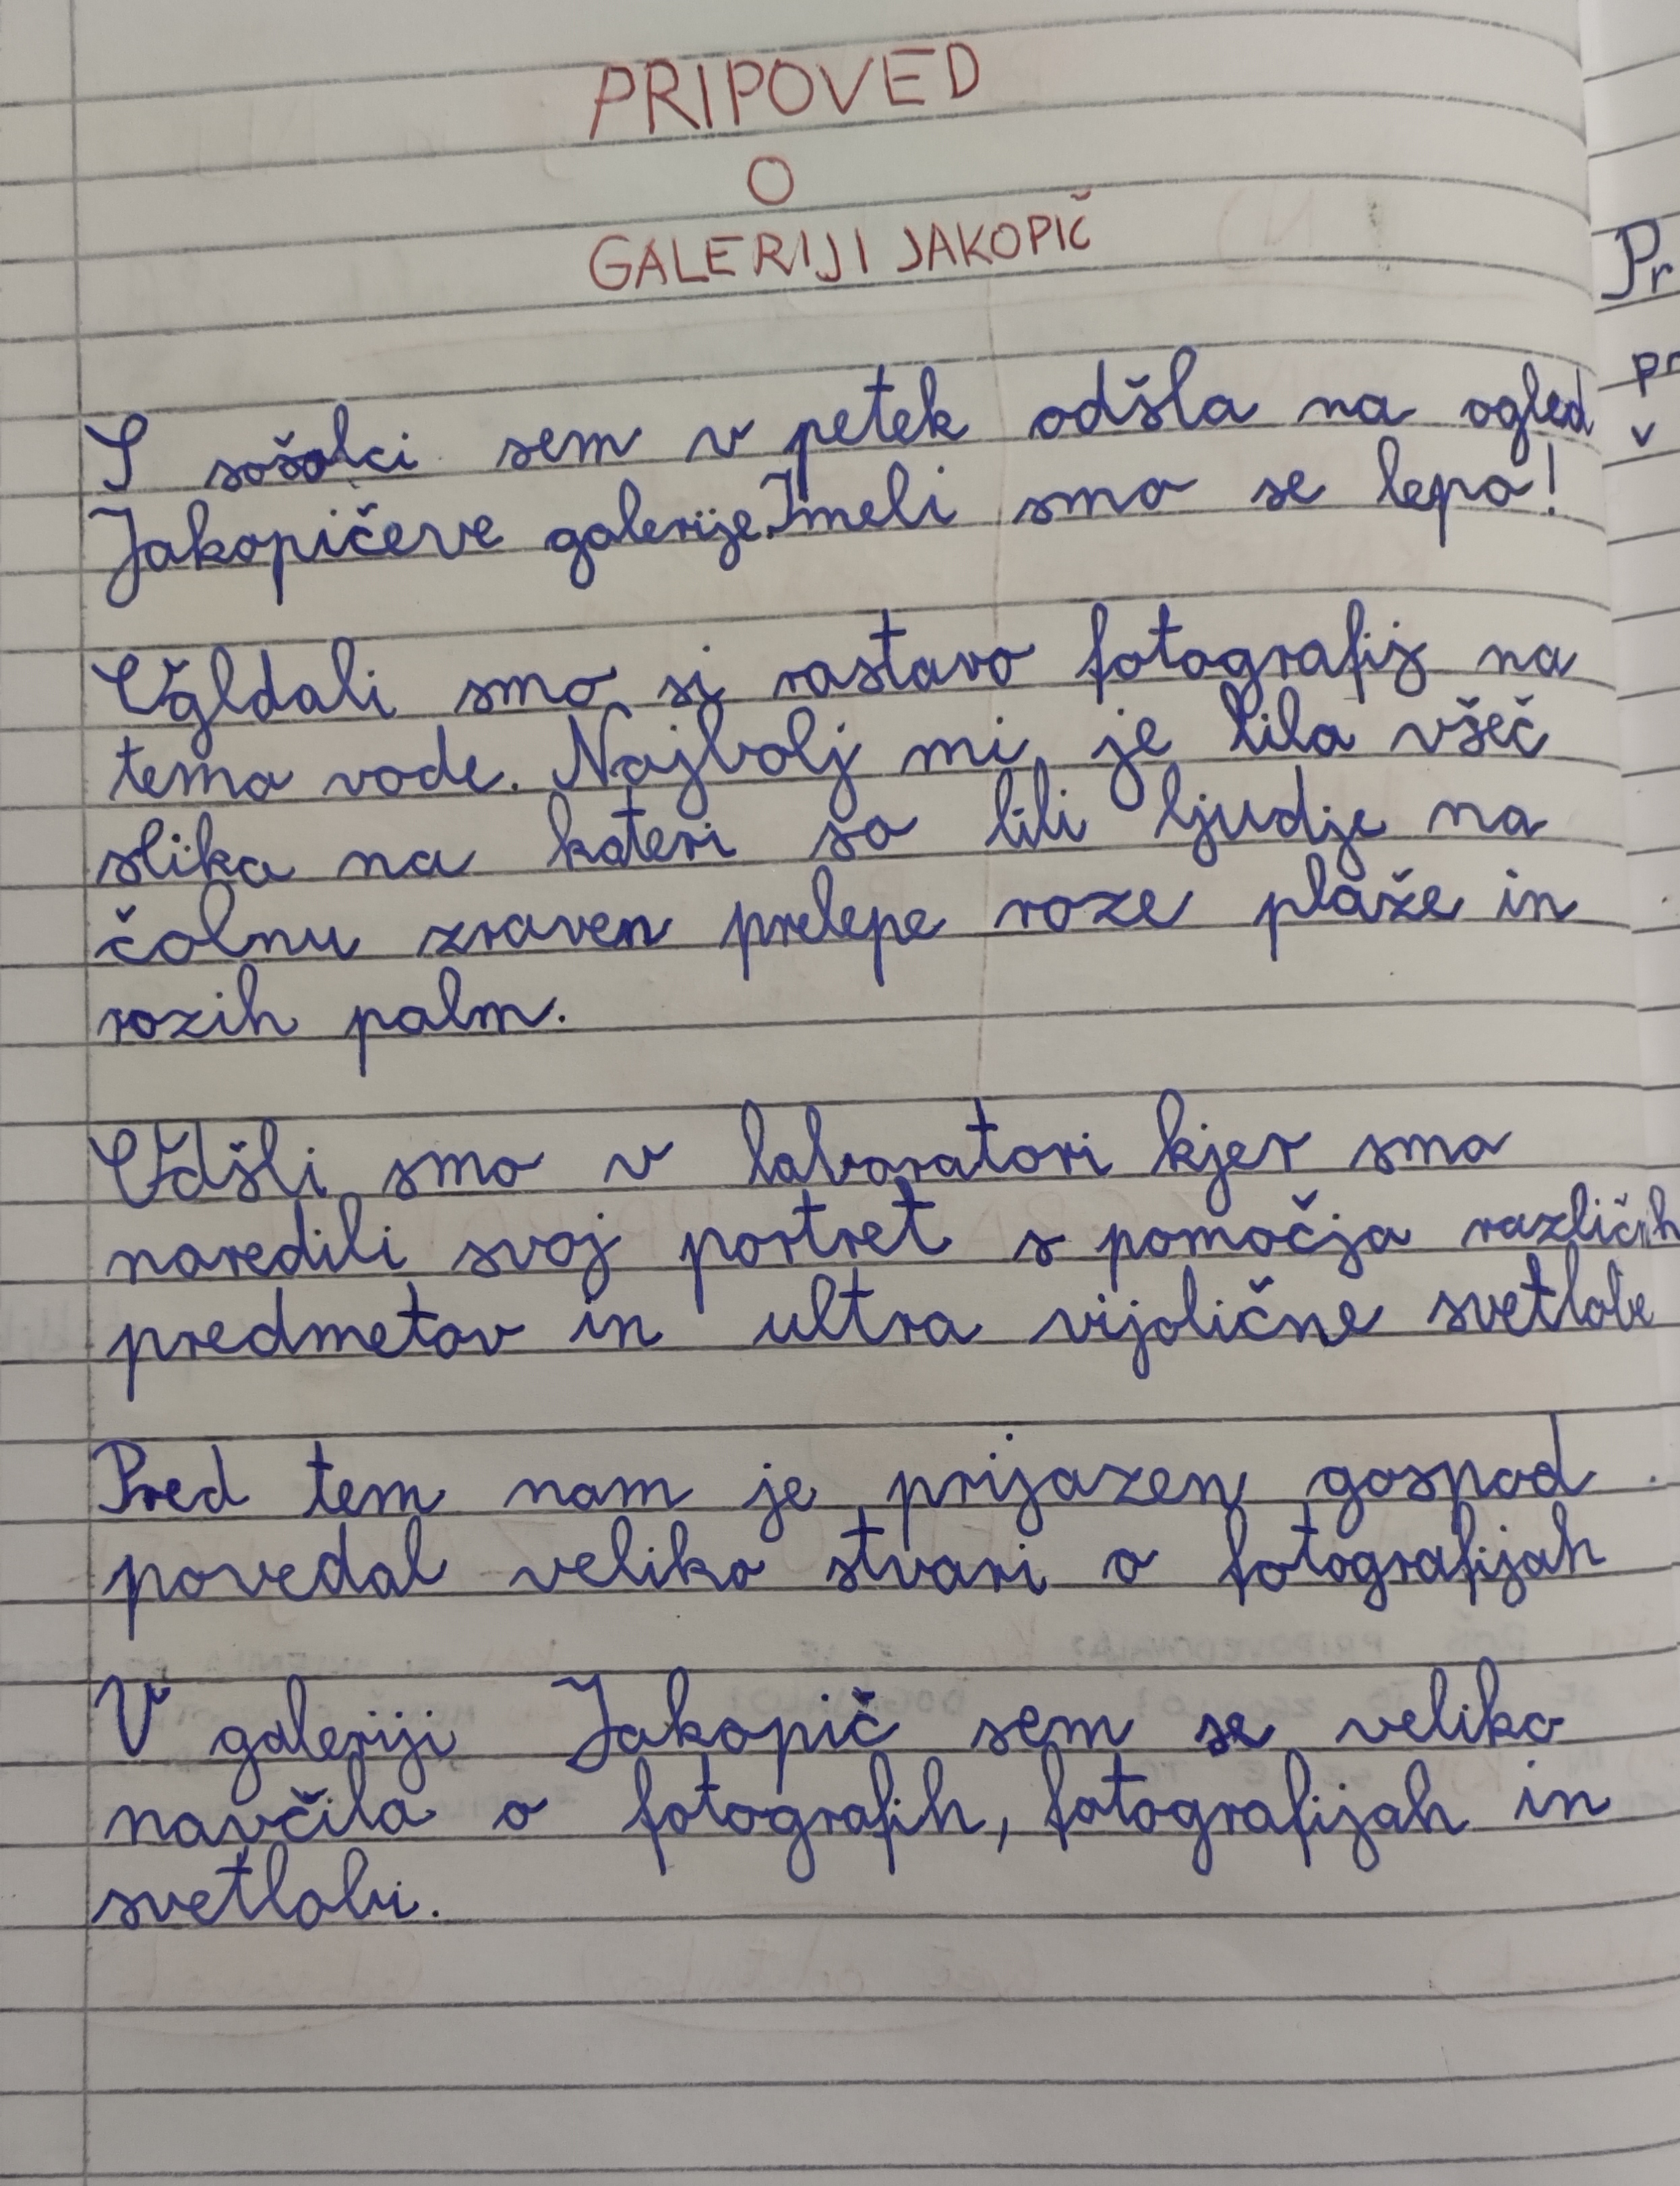 PRIPOVED
O
GALERIJI JAKOPIČ
S sošolci sem v petek odšla na ogled
Jakopičeve galerije. Imeli smo se lepo!
Ogldali smo si rastavo fotografij na
temo vode. Najbolj mi je bila všeč
slika na kateri so bili ljudje na
čolnu zraven prelepe roze plaže in
rozih palm.
Odšli smo v laboratori kjer smo
naredili svoj portret s pomočja različnih
predmetov in ultra vijolične svetlobe
Pred tem nam je prijazen gospod
povedal veliko stvari o fotografijah
V galeriji Jakopič sem se veliko
navčila o fotografih, fotografijah in
svetlobi.
Pr
pr
v